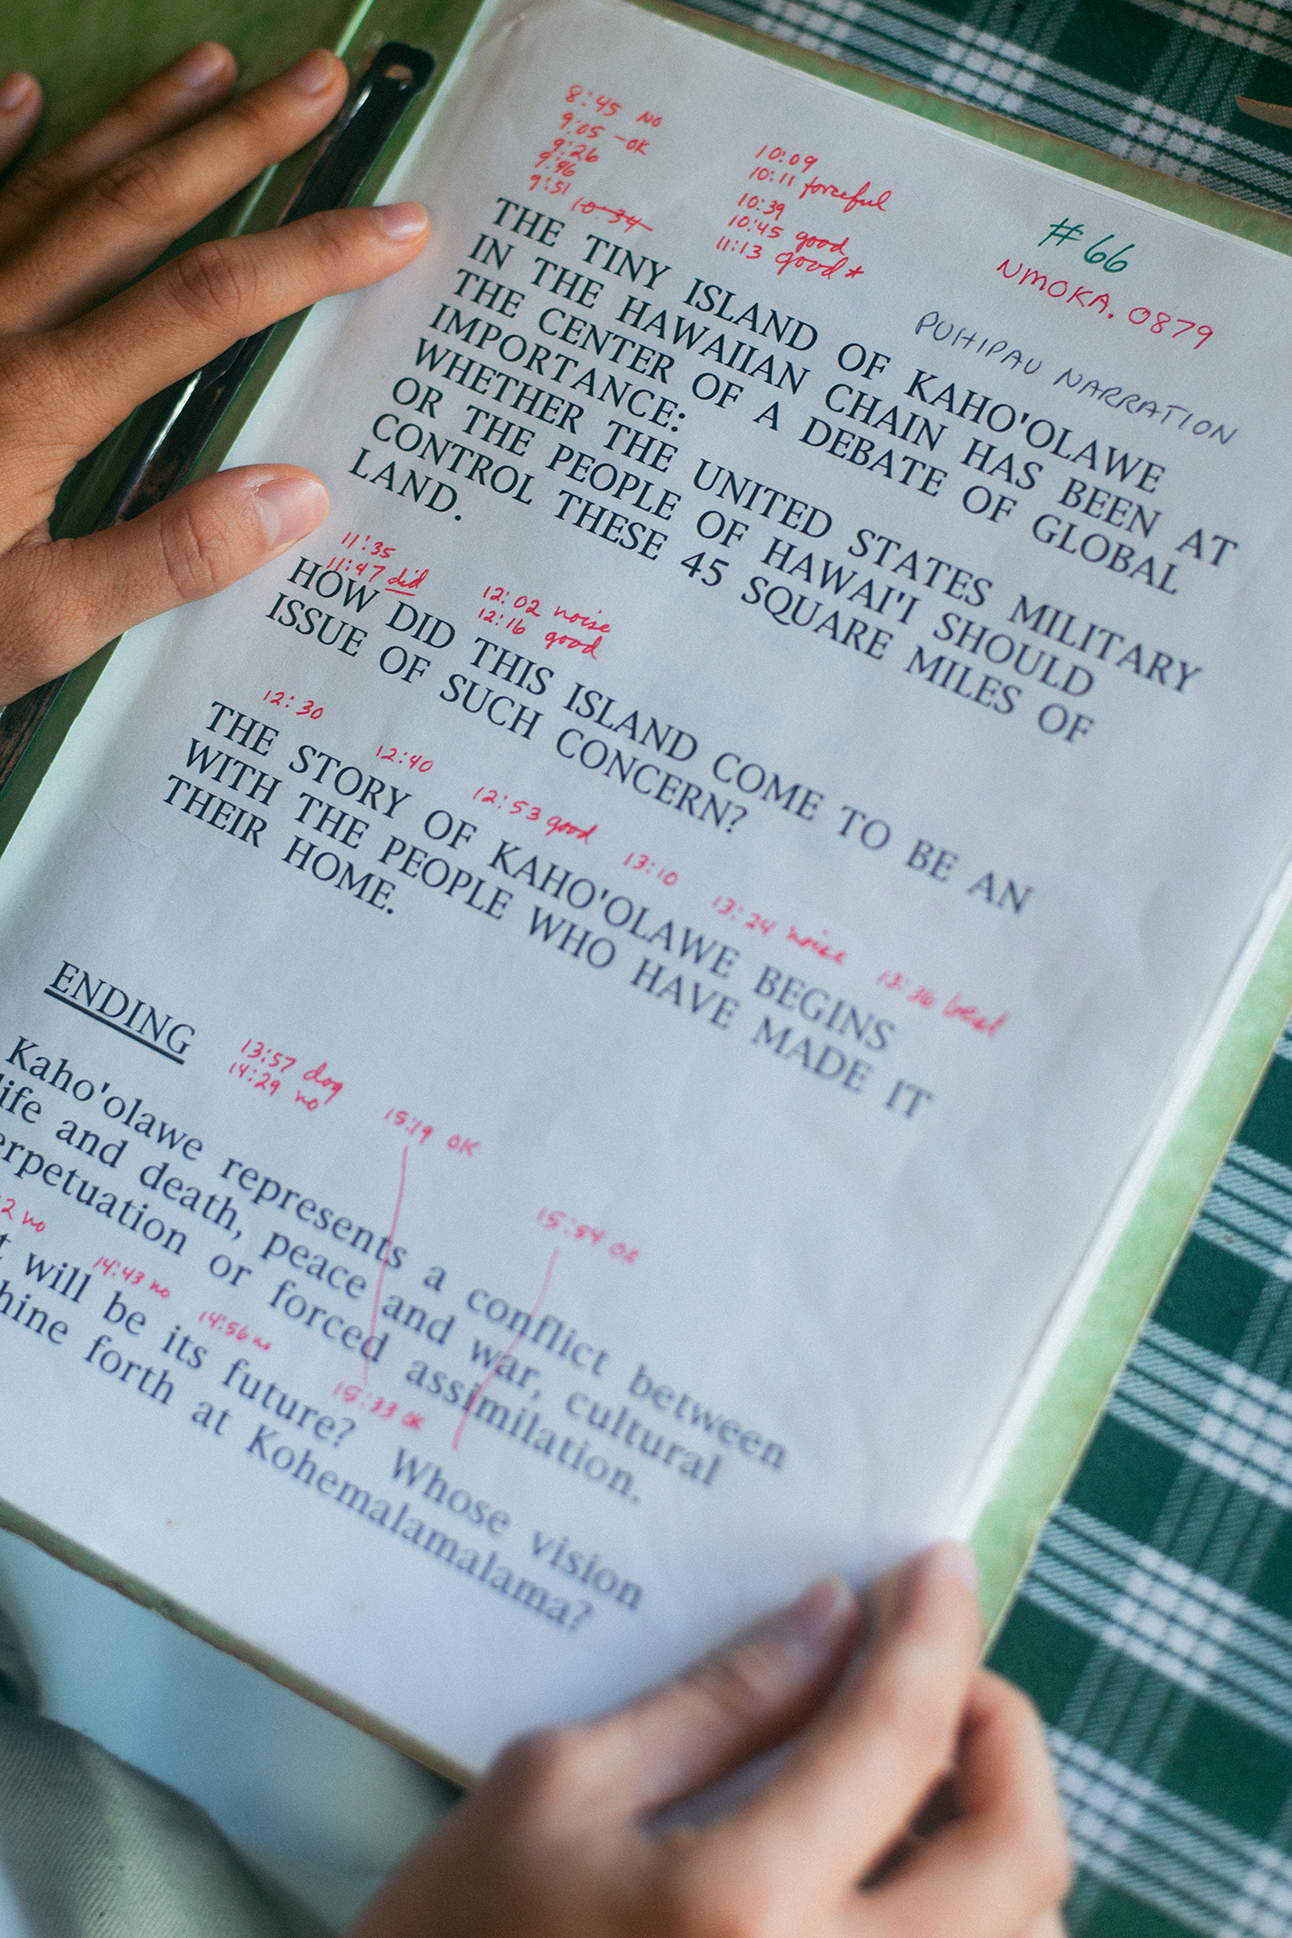 8:45 NO
9:05 -OK
9:26
9:46
9:51 10:34
10:09
10:11 forceful
10:39
10:45 good
11:13 good*
#66
NMOKA.0879
PUHIPAU NARRATION
THE TINY ISLAND OF KAHO'OLAWE
IN THE HAWAIIAN CHAIN HAS BEEN AT
THE CENTER OF A DEBATE OF GLOBAL
IMPORTANCE:
WHETHER THE UNITED STATES MILITARY
OR THE PEOPLE OF HAWAI'I SHOULD
CONTROL THESE 45 SQUARE MILES OF
LAND.
11:35
11:47 did
12:02 noise
12:16 good
HOW DID THIS ISLAND COME TO BE AN
ISSUE OF SUCH CONCERN?
12:30 12:40 12:53 good 13:10 13:24 noise 13:36 best
THE STORY OF KAHO'OLAWE BEGINS
WITH THE PEOPLE WHO HAVE MADE IT
THEIR HOME.
ENDING
13:57 dog
14:29 no
15:19 OK
Kaho'olawe represents a conflict between
life and death, peace and war, cultural
perpetuation or forced assimilation.
2 no 14:43 no 14:56 no 15:33 OK 15:54 OK
will be its future? Whose vision
forth at Kohemalamalama?